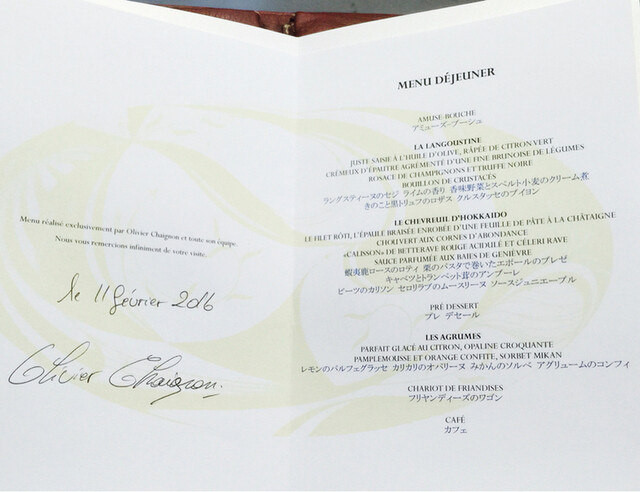 Menu réalisé exclusivement par Olivier Chaignon et toute son équipe.
Nous vous remercions infiniment de votre visite.
le 11 février 2016
Olivier Chaignon.
MENU DÉJEUNER
AMUSE-BOUCHE
アミューズ-ブーシュ
LA LANGOUSTINE
JUSTE SAISIE À L'HUILE D'OLIVE, RÂPÉE DE CITRON VERT
CRÉMEUX D'ÉPAUTRE AGRÉMENTÉ D'UNE FINE BRUNOISE DE LÉGUMES
ROSACE DE CHAMPIGNONS ET TRUFFE NOIRE
BOUILLON DE CRUSTACÉS
ラングスティーヌのセジ ライムの香り 香味野菜とスペルト小麦のクリーム煮
きのこと黒トリュフのロザス クルスタッセのブイヨン
LE CHEVREUIL D'HOKKAIDO
LE FILET RÔTI, L'ÉPAULE BRAISÉE ENROBÉE D'UNE FEUILLE DE PÂTE À LA CHÂTAIGNE
CHOU VERT AUX CORNES D'ABONDANCE
«CALISSON» DE BETTERAVE ROUGE ACIDULÉ ET CÉLERI RAVE
SAUCE PARFUMÉE AUX BAIES DE GENIÈVRE
蝦夷鹿ロースのロティ 栗のパスタで巻いたエポールのブレゼ
キャベツとトランペット茸のアンブーレ
ビーツのカリソン セロリラブのムースリーヌ ソースジュニエーブル
PRÉ DESSERT
プレ デセール
LES AGRUMES
PARFAIT GLACÉ AU CITRON, OPALINE CROQUANTE
PAMPLEMOUSSE ET ORANGE CONFITE, SORBET MIKAN
レモンのパルフェグラッセ カリカリのオパリーヌ みかんのソルベ アグリュームのコンフィ
CHARIOT DE FRIANDISES
フリヤンディーズのワゴン
CAFÉ
カフェ